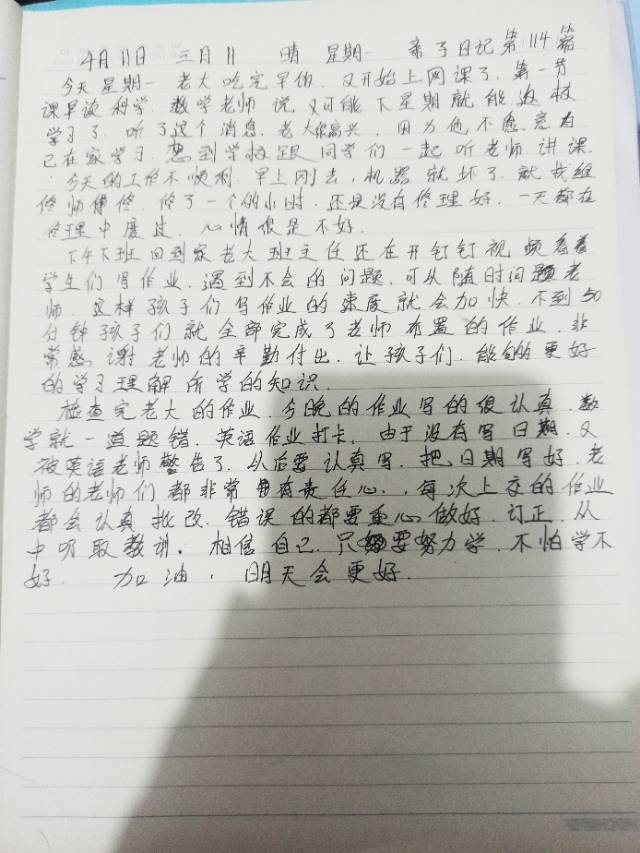 4月11日 三月11 晴 星期一 亲子日记第114篇
今天星期一 老大吃完早饭，又开始上网课了，第一节
课早读科学，数学老师说，又可能下星期就能返校
学习了，听了这个消息，老大很高兴，因为他不愿意自
己在家学习，想到学校跟同学们一起听老师讲课.
今天的工作不顺利，早上刚去，机器就坏了，就找维
修师傅修，修了一个的小时，还是没有修理好，一天都在
修理中度过，心情很是不好.
下午下班回到家老大班主任还在开钉钉视频看着
学生们写作业，遇到不会的问题，可从随时问题老
师，这样孩子们写作业的速度就会加快，不到50
分钟孩子们就全部完成了老师布置的作业，非
常感谢老师的辛勤付出，让孩子们，能够的更好
的学习理解所学的知识.
检查完老大的作业，今晚的作业写的很认真，数
学就一道题错，英语作业打卡，由于没有写日期，又
被英语老师警告了，从后要认真写，把日期写好，老
师的老师们都非常有责任心，每次上交的作业
都会认真批改，错误的都要重心做好，订正，从
中听取教训，相信自己，只要努力学，不怕学不
好. 加油，明天会更好.